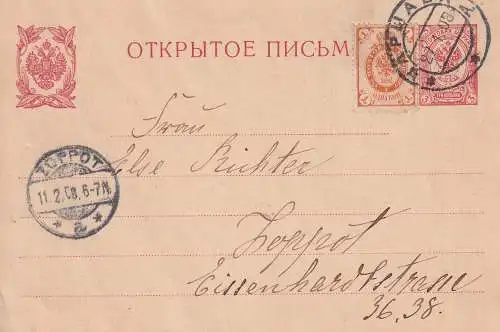 ОТКРЫТОЕ ПИСЬМ
ВАРШАВА
Frau
Else Richter
ZOPPOT
11.2.08.6-7N.
* a *
Zoppot
Eissenhardtstrasse
36, 38.